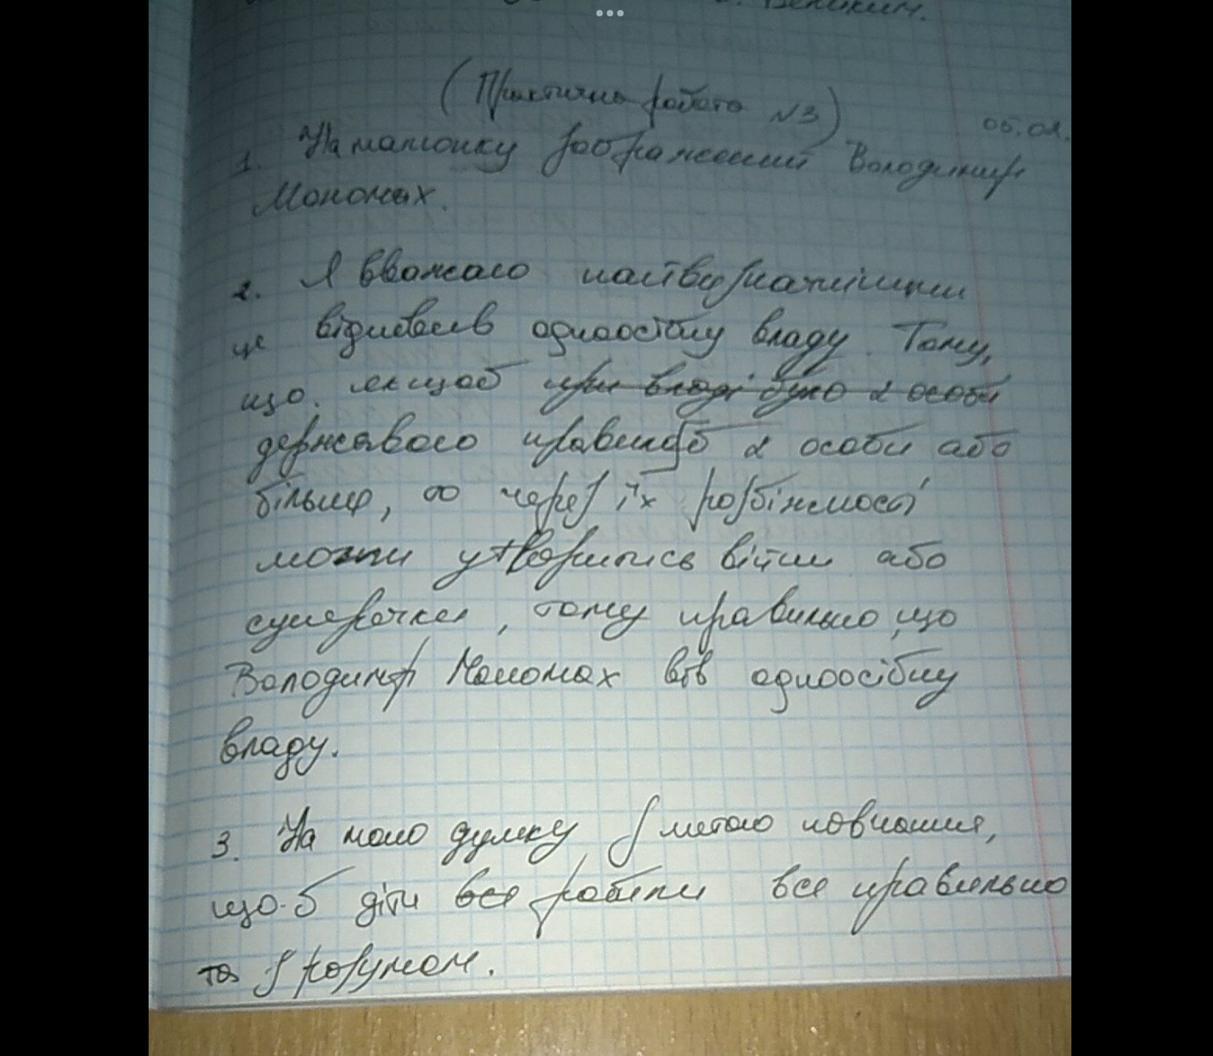 Великим.
(Практична робота №3)
1. На малюнку зображений Володимир
Мономах.
2. Я вважаю найвизначнішим
це відновив одноосібну владу. Тому,
що якщоб при владі було 2 особи
державою правилоб 2 особи або
більше, то через їх розбіжності
могли утворитись війни або
суперечки, тому правильно, що
Володимир Мономах ввів одноосібну
владу.
3. На мою думку з метою повчання,
що-б діти все робили все правильно
та з розумом.